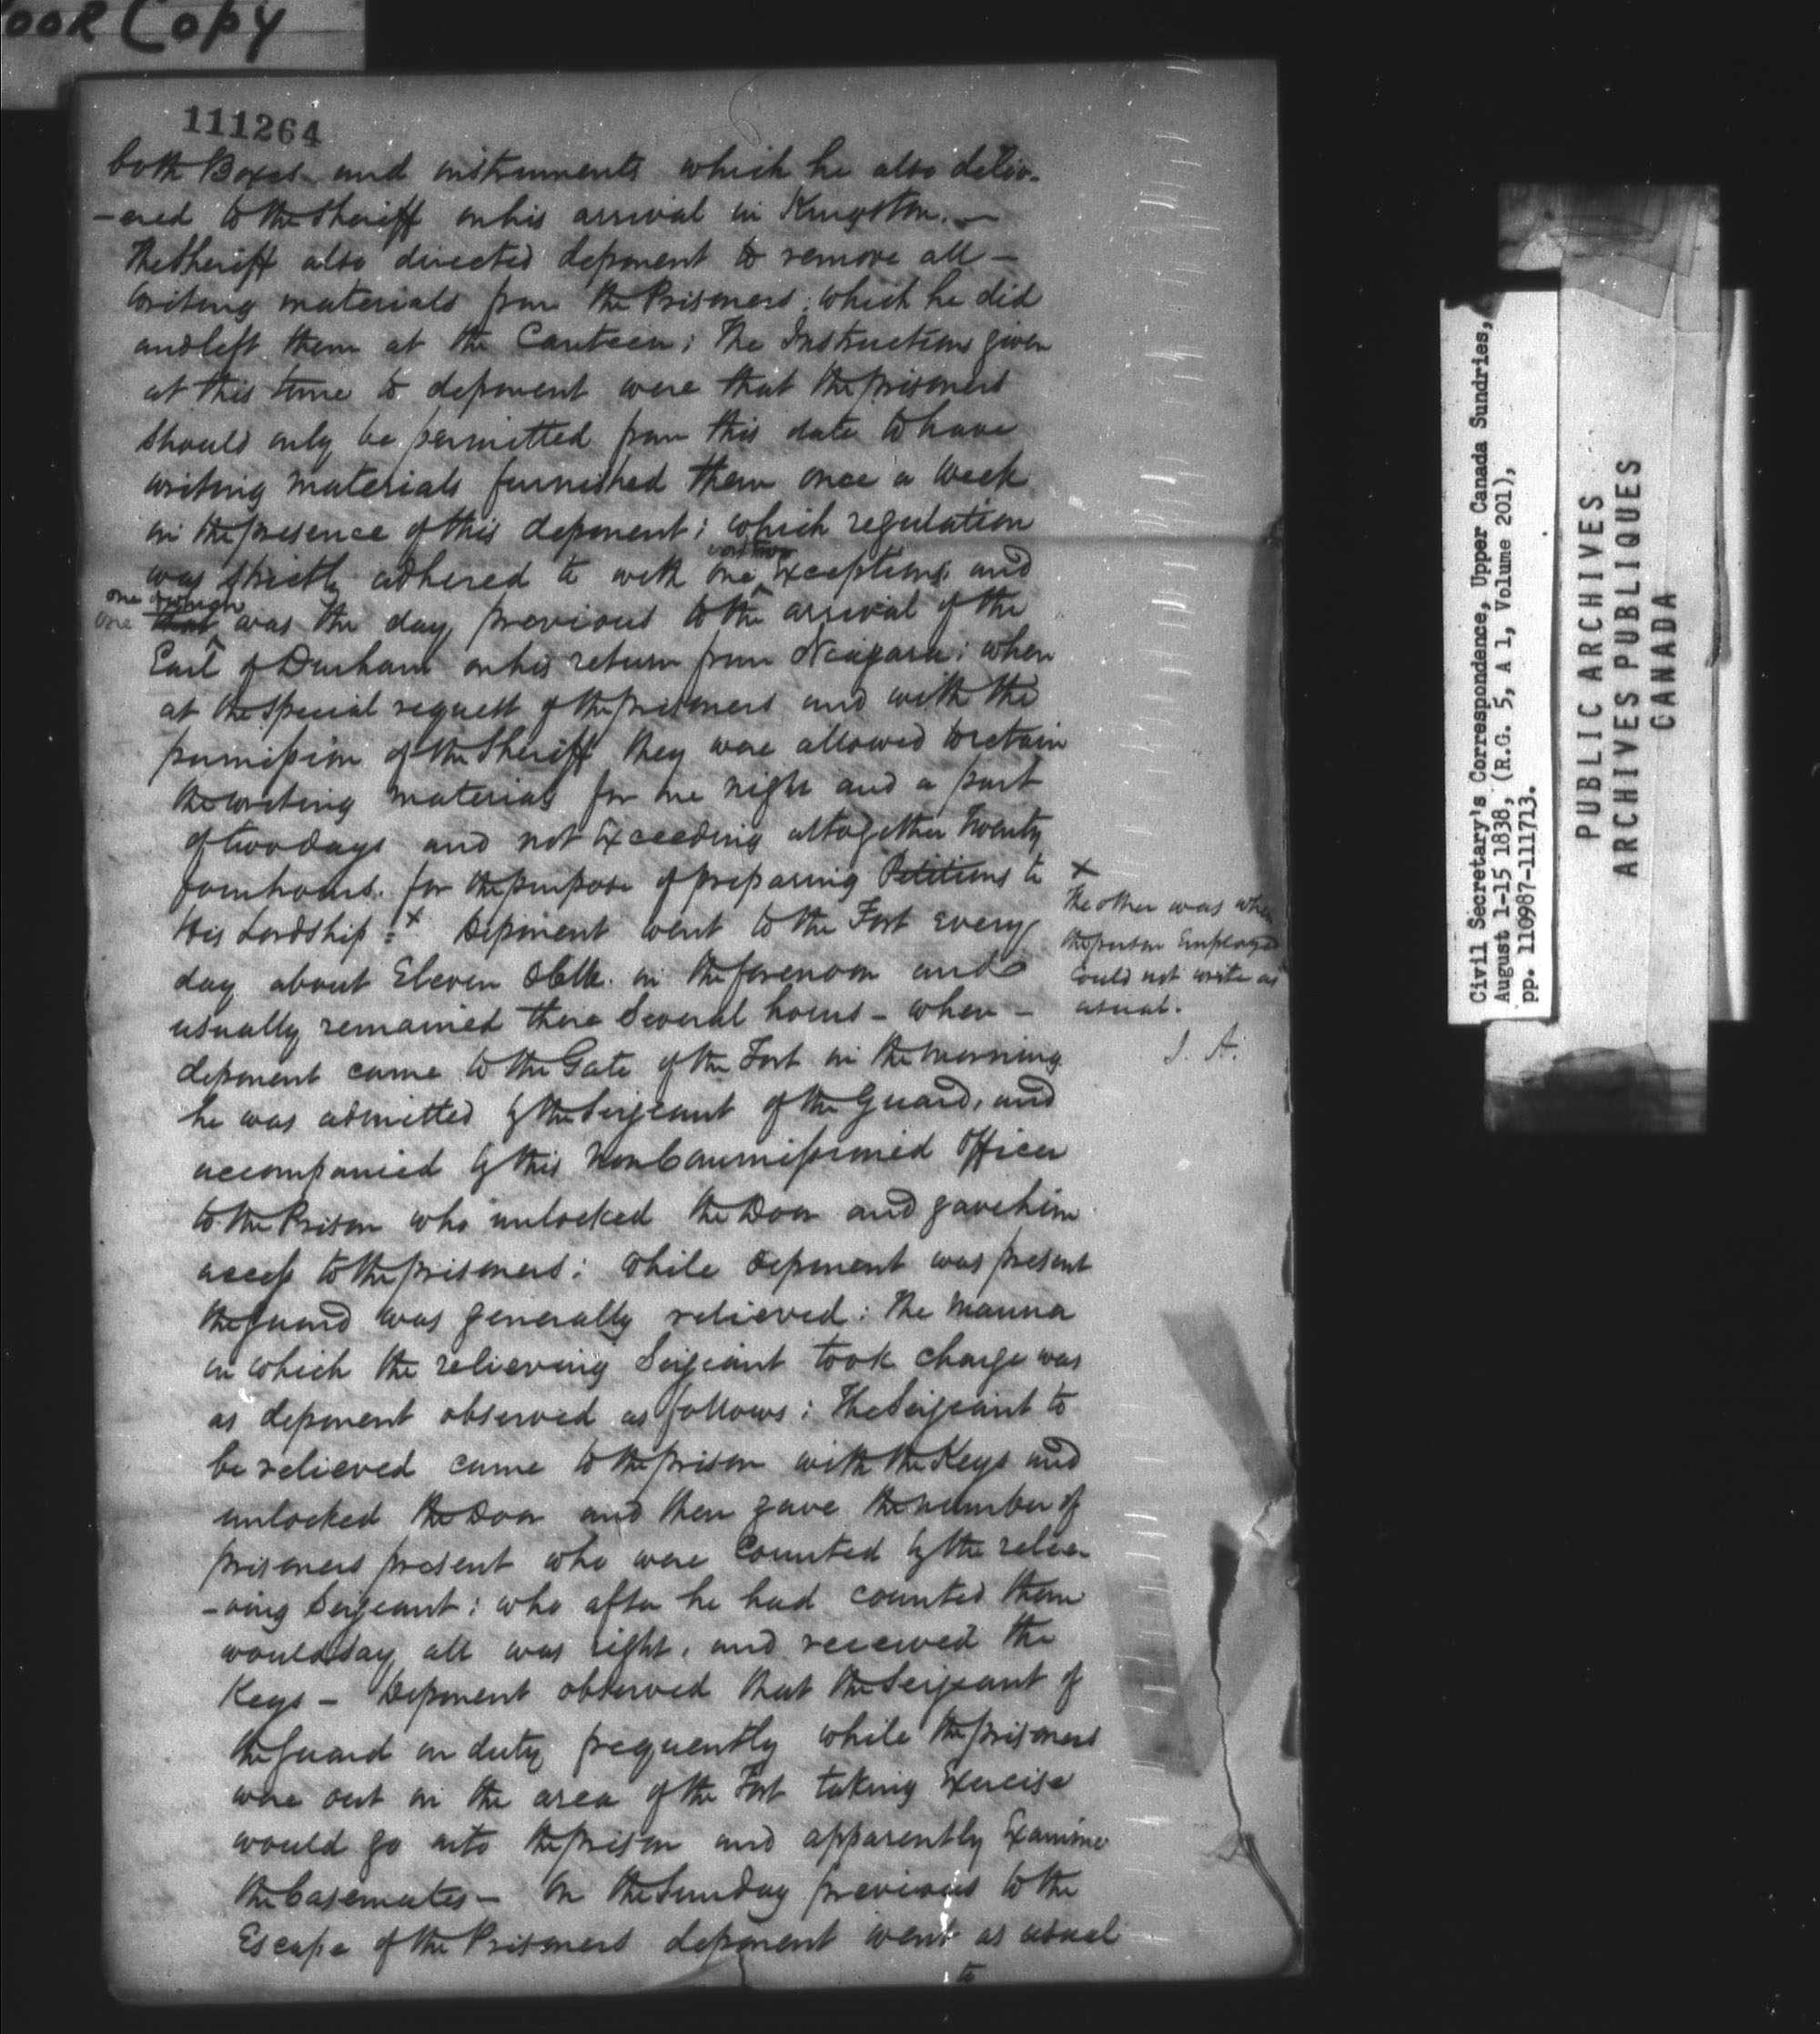 OOR Copy
111264
both Boxes and instruments which he also deliv-
-ered to the Sheriff on his arrival in Kingston. —
The Sheriff also directed deponent to remove all —
writing materials from the Prisoners: which he did
and left them at the Canteen; The Instructions given
at this time to deponent were that the prisoners
should only be permitted from this date to have
writing materials furnished them once a week
in the presence of this deponent; which regulation
was strictly adhered to with one exceptions and
one of which
one that was the day previous to the arrival of the
Earl of Durham on his return from Niagara: when
at the special request of the prisoners and with the
permission of the Sheriff they were allowed to retain
the writing materials for one night and a part
of two days and not Exceeding altogether Twenty
four hours. for the purpose of preparing Petitions to
His Lordship :x Deponent went to the Fort every
day about Eleven oClk. in the forenoon and
usually remained there Several hours - when -
deponent came to the Gate of the Fort in the morning
he was admitted by the Serjeant of the Guard, and
accompanied by this Non Commissioned Officer
to the Prison who unlocked the Door and gave him
access to the prisoners: While deponent was present
the guard was generally relieved: The manner
in which the relieving Serjeant took charge was
as deponent observed as follows: The Serjeant to
be relieved came to the prison with the Keys and
unlocked the Door and then gave the number of
prisoners present who were Counted by the relie-
-ving Serjeant: who after he had counted them
would say all was right, and received the
Keys - Deponent observed that the Serjeant of
the Guard on duty frequently while the prisoners
were out in the area of the Fort taking Exercise
would go into the prison and apparently Examine
the Casemates - On the Sunday previous to the
Escape of the Prisoners deponent went as usual
to
x
The other was when
the person Employed
Could not write as
usual.
J. A.
Civil Secretary's Correspondence, Upper Canada Sundries,
August 1-15 1838, (R.G. 5, A 1, Volume 201),
pp. 110987-111713.
PUBLIC ARCHIVES
ARCHIVES PUBLIQUES
CANADA